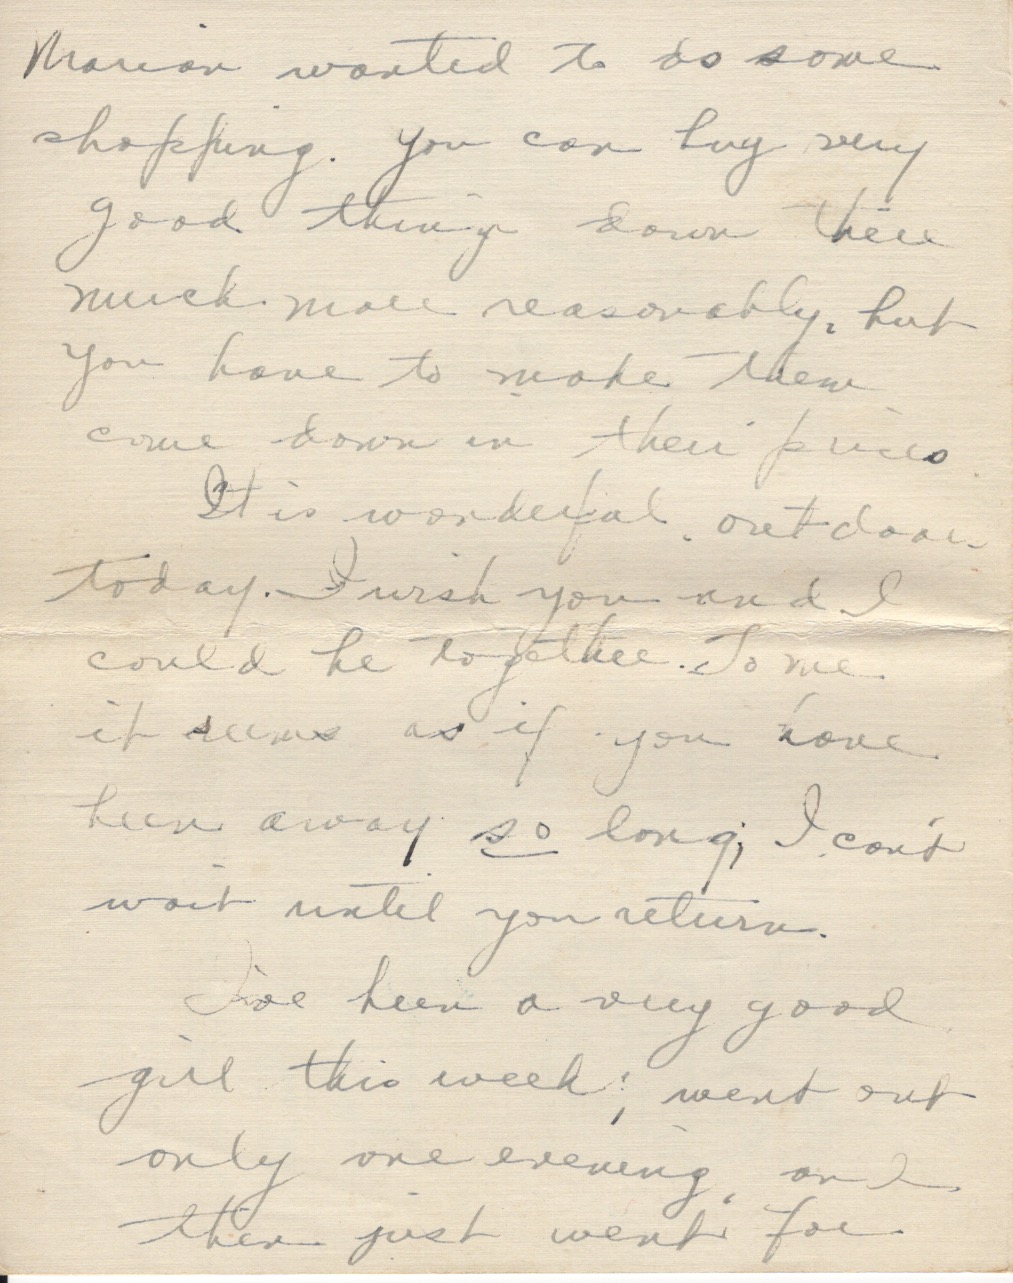 Marian wanted to do some
shopping. You can buy very
good things down there
much more reasonably, but
you have to make them
come down in their prices.
It is wonderful, outdoors
today. I wish you and I
could be together. To me
it seems as if you have
been away so long; I can't
wait until you return.
I've been a very good
girl this week; went out
only one evening, and
then just went for